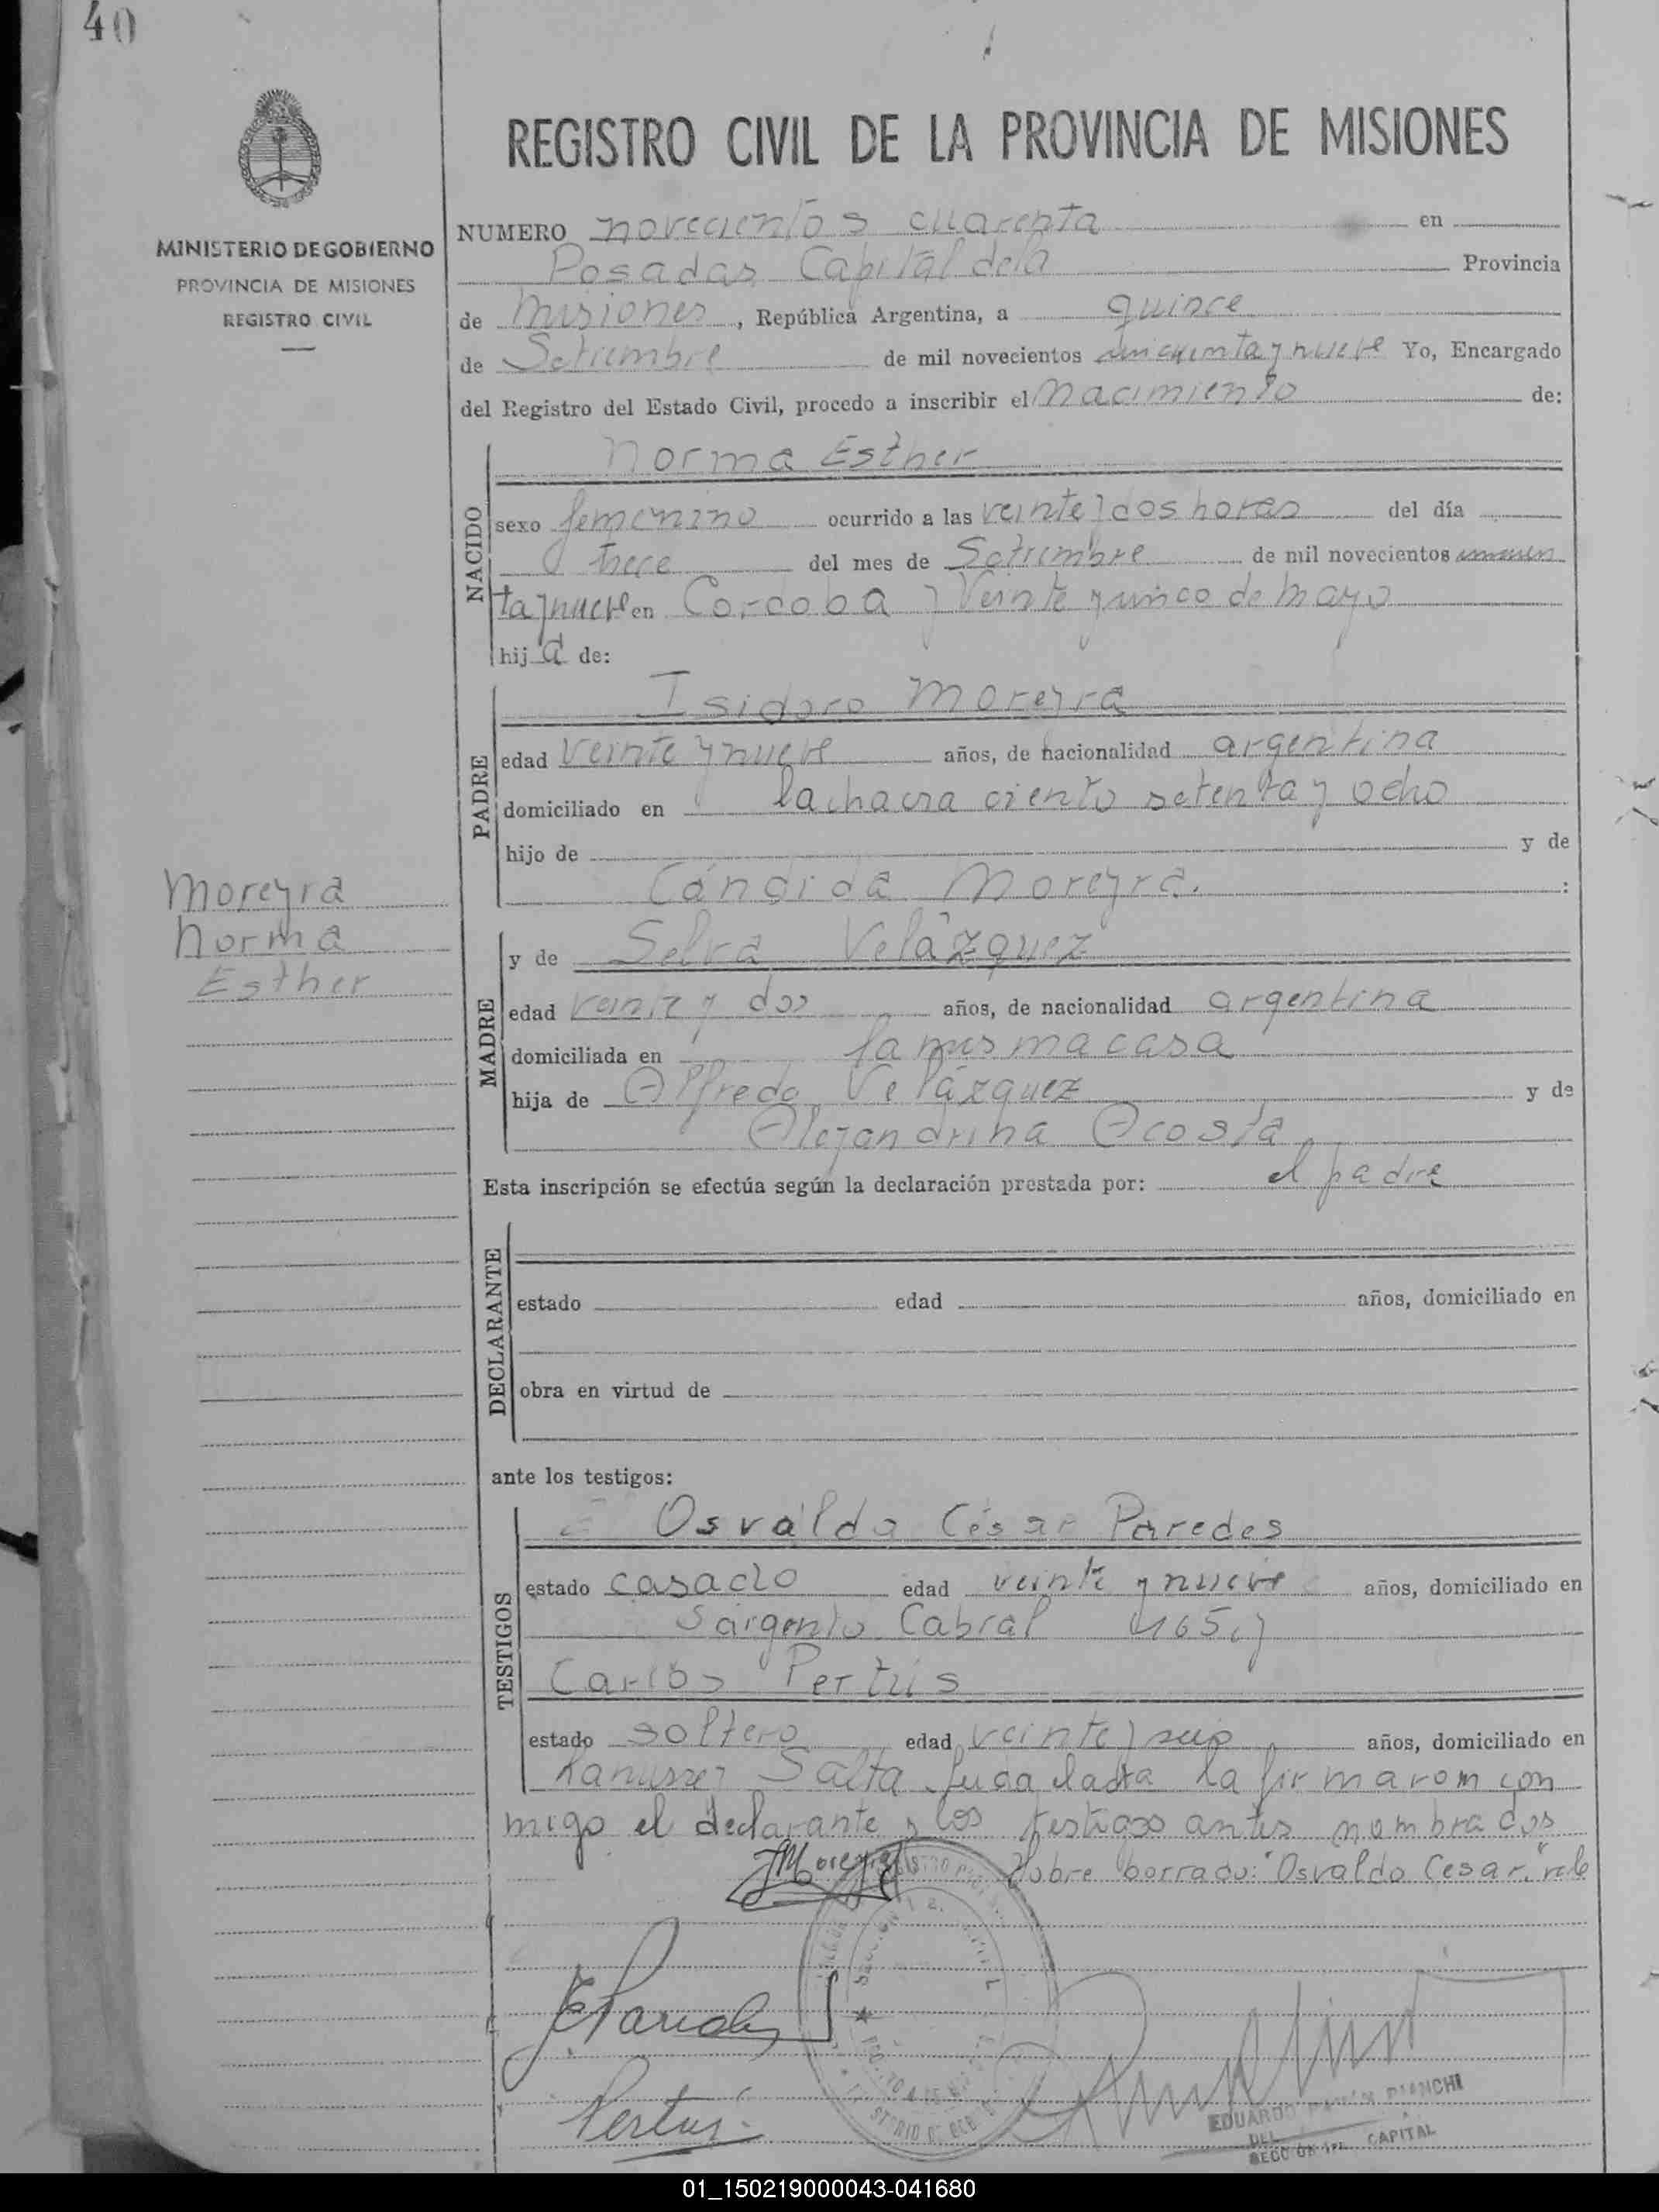 40
REGISTRO CIVIL DE LA PROVINCIA DE MISIONES
MINISTERIO DE GOBIERNO
PROVINCIA DE MISIONES
REGISTRO CIVIL
NUMERO novecientos cuarenta en
Posadas Capital dela Provincia
de Misiones, República Argentina, a quince
de Setiembre de mil novecientos cincuenta y nueve Yo, Encargado
del Registro del Estado Civil, procedo a inscribir el Nacimiento de:
NACIDO
Norma Esther
sexo femenino ocurrido a las veinte y dos horas del día
trece del mes de Setiembre de mil novecientos
ta y nueve en Cordoba y Veinte y cinco de Mayo
hija de:
PADRE
Isidoro Moreyra
edad veinte y nueve años, de nacionalidad argentina
domiciliado en la chacra ciento setenta y ocho
hijo de y de
Cándida Moreyra. :
Moreyra
Norma
Esther
MADRE
y de Selva Velázquez
edad veinte y dos años, de nacionalidad argentina
domiciliada en la misma casa
hija de Alfredo Velázquez y de
Alejandrina Acosta
Esta inscripción se efectúa según la declaración prestada por: el padre
DECLARANTE
estado edad años, domiciliado en
obra en virtud de
ante los testigos:
TESTIGOS
Osvaldo César Paredes
estado casado edad veinte y nueve años, domiciliado en
Sargento Cabral 165 y
Carlos Pertús
estado soltero edad veinte y seis años, domiciliado en
Salta la firmaron con
migo el declarante y los testigos antes nombrados
Sobre borrado: "Osvaldo Cesar" vale
Moreyra
Paredes
Pertus
EDUARDO RAMÓN BIANCHI
DEL
SECCIÓN 1ra. CAPITAL
01_150219000043-041680